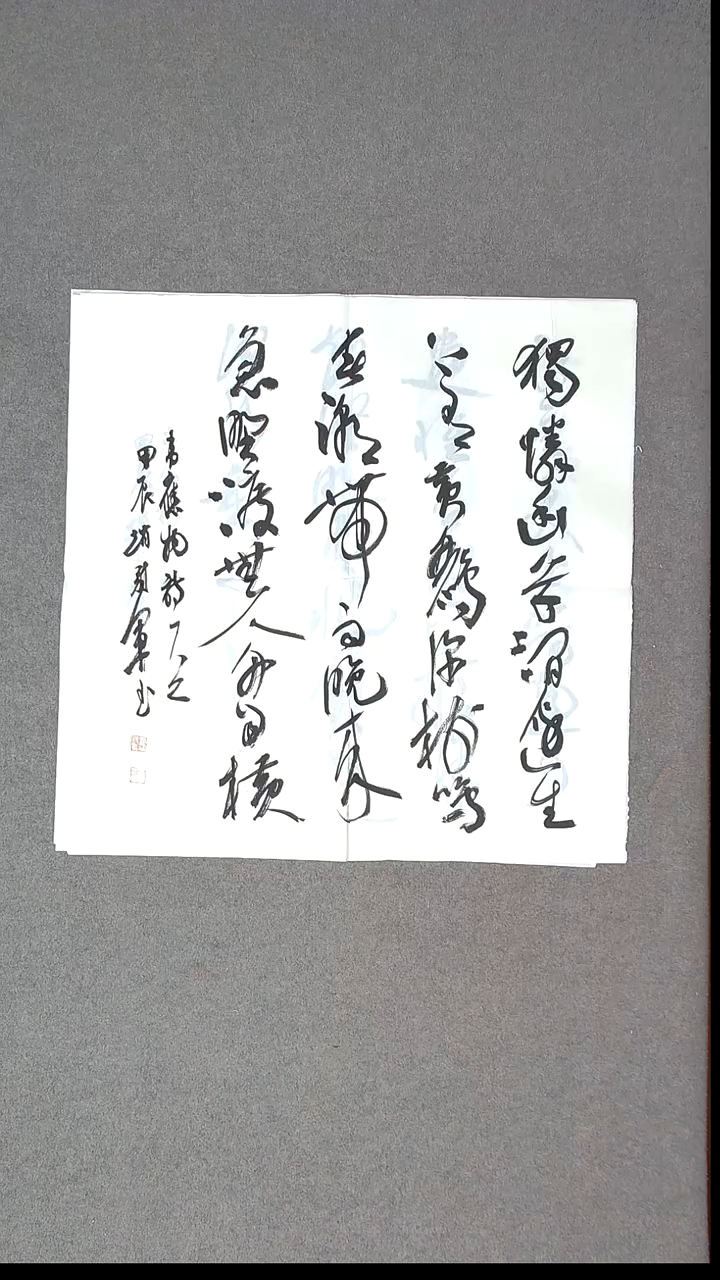 獨憐幽草澗邊生
上有黃鸝深樹鳴
春潮帶雨晚來
急野渡無人舟自橫
韋應物詩
甲辰 軍書